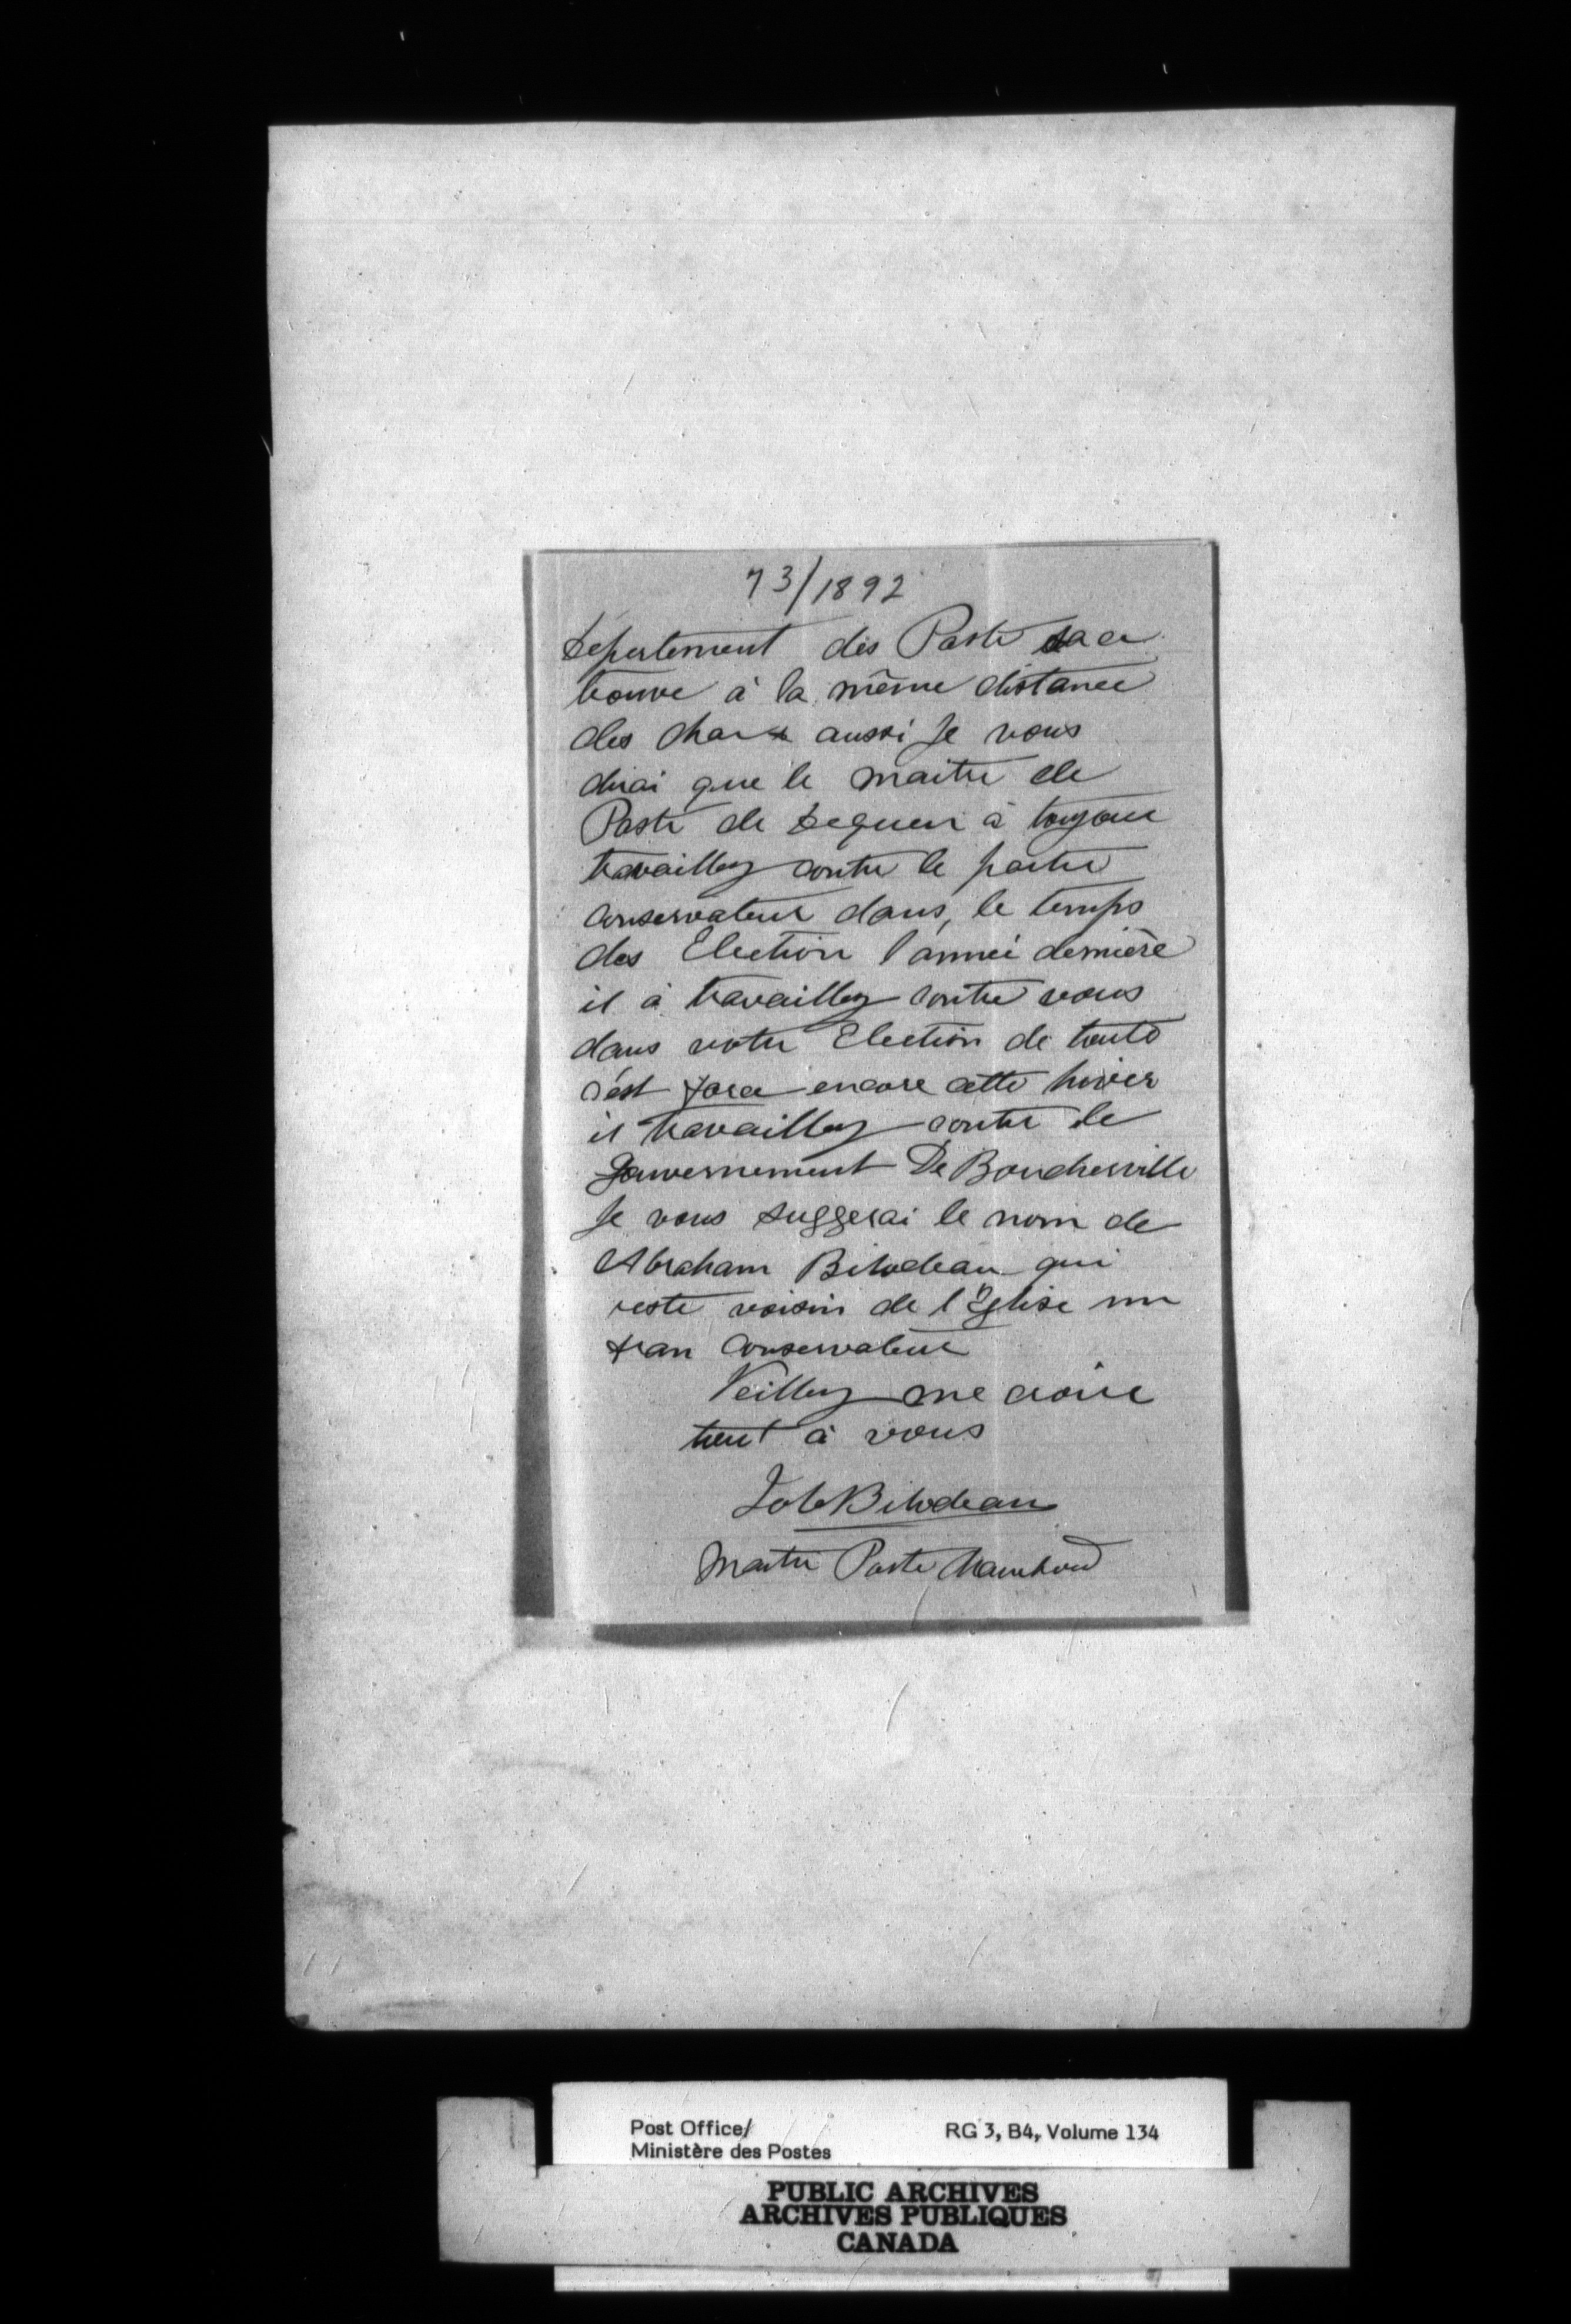 73/1892
departement des Poste sa ce
trouve à la même distance
des chars aussi Je vous
dirai que le maitre de
Poste de Dequen à toujour
travailley contre le partie
Conservateur dans, le temps
des Election l'année dernière
il à travailley contre vous
dans votre Election de toute
s'est force encore cette hiver
il travailley contre le
Gouvernement De Boucherville
Je vous suggerai le nom de
Abraham Bilodeau qui
reste voisin de l'Eglise un
fran Conservateur
Veilley me croire
tout à vous
Job Bilodeau
Maitre Poste Chambord
Post Office/ RG 3, B4, Volume 134
Ministère des Postes
PUBLIC ARCHIVES
ARCHIVES PUBLIQUES
CANADA